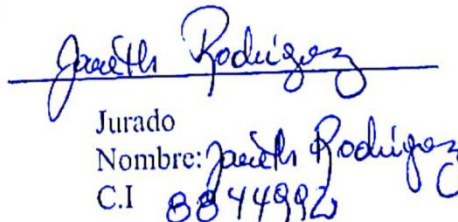 Janeth Rodríguez
Jurado
Nombre: Janeth Rodríguez
C.I 8844992